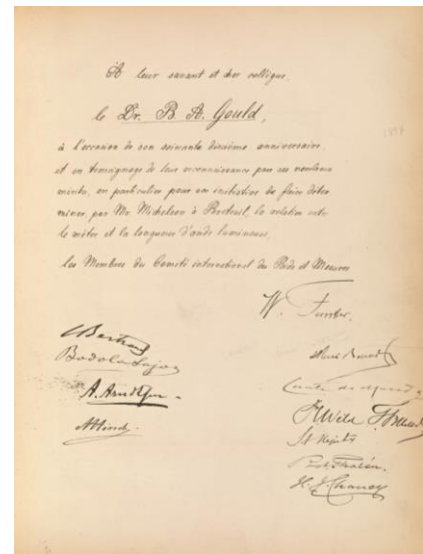 A leur savant et cher collègue,
le Dr. B. A. Gould,
à l'occasion de son soixante dixième anniversaire,
et en témoignage de leur reconnaissance pour ses nombreux
mérites, en particulier pour son initiative de faire déter-
miner, par Mr Michelson à Breteuil, la relation entre
le mètre et la longueur d'onde lumineuse,
les Membres du Comité international des Poids et Mesures
W. Foerster.
Bertrand
Bodola Lajos
A. Arndtsen
Hirsch
St. Hepites
Rob. Thalén.
H. J. Chaney
H Wild
1894